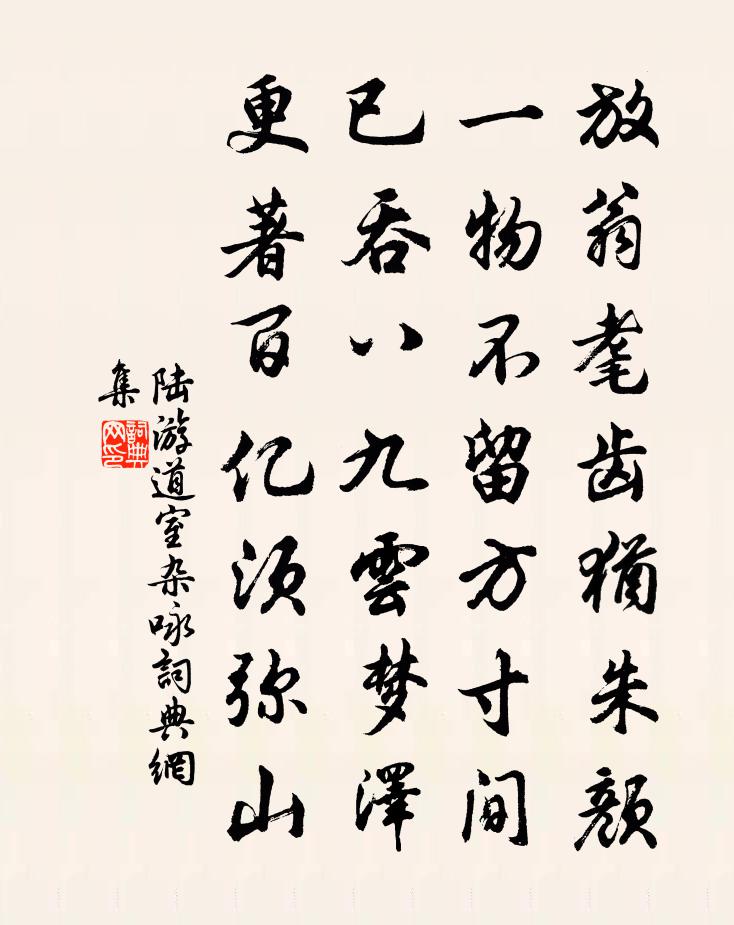 放翁耄齿猶朱颜
一物不留方寸间
已吞八九雲梦澤
更著百亿须弥山
陆游道室杂咏詞典網
集
詞典
网印